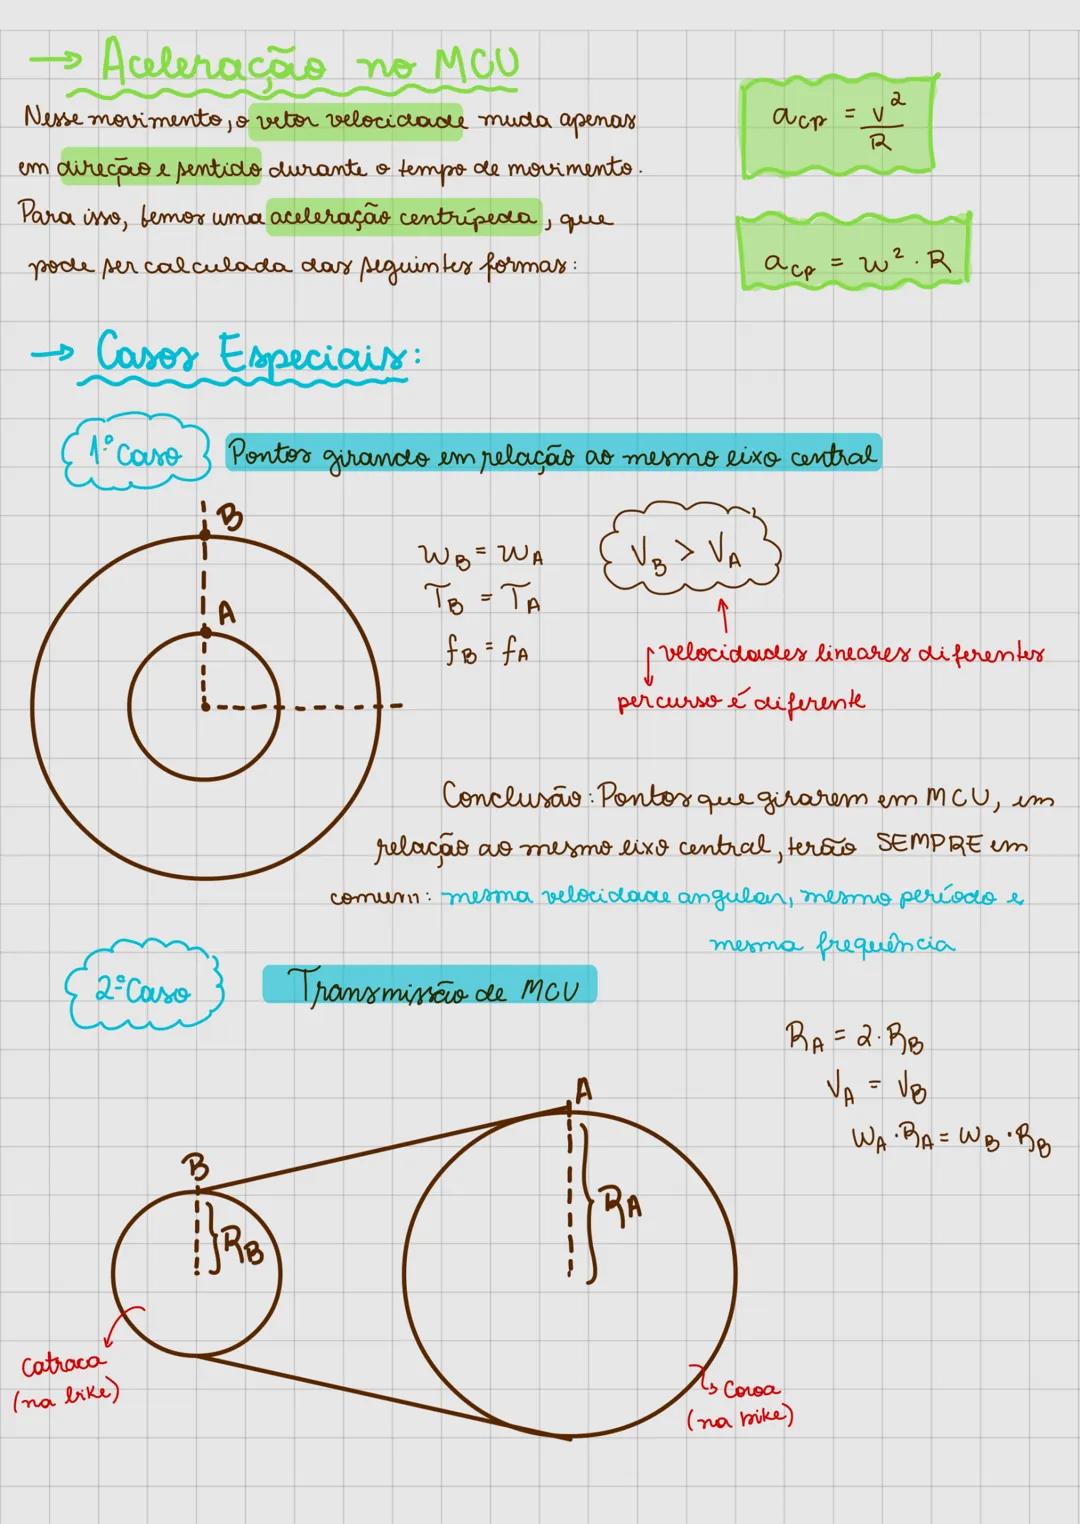 → Aceleração no MCU
Nesse movimento, o vetor velocidade muda apenas
em direção e sentido durante o tempo de movimento.
Para isso, temos uma aceleração centrípeda, que
pode ser calculada das seguintes formas:
acp = v²/R
acp = w² . R
→ Casos Especiais:
1º Caso
Pontos girando em relação ao mesmo eixo central
B
A
WB = WA
TB = TA
fB = fA
VB > VA
velocidades lineares diferentes
percurso é diferente
Conclusão: Pontos que girarem em MCU, em
relação ao mesmo eixo central, terão SEMPRE em
comum: mesma velocidade angular, mesmo período e
mesma frequência
2º Caso
Transmissão de MCU
RA = 2.RB
VA = VB
WA.RA = WB.RB
A
B
RA
RB
Catraca
(na bike)
Coroa
(na bike)